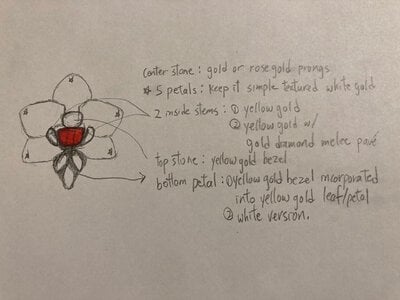 center stone : gold or rose gold prongs
* 5 petals : Keep it simple textured white gold
2 inside stems : ① yellow gold
② yellow gold w/
gold diamond melee pavé
top stone : yellow gold bezel
bottom petal : ① yellow gold bezel incorporated
into yellow gold leaf/petal
② white version.